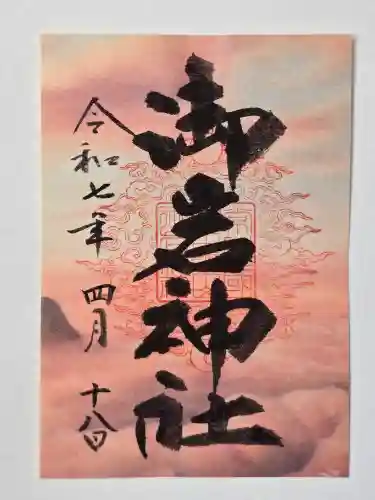 御岩神社
令和七年 四月 十八日